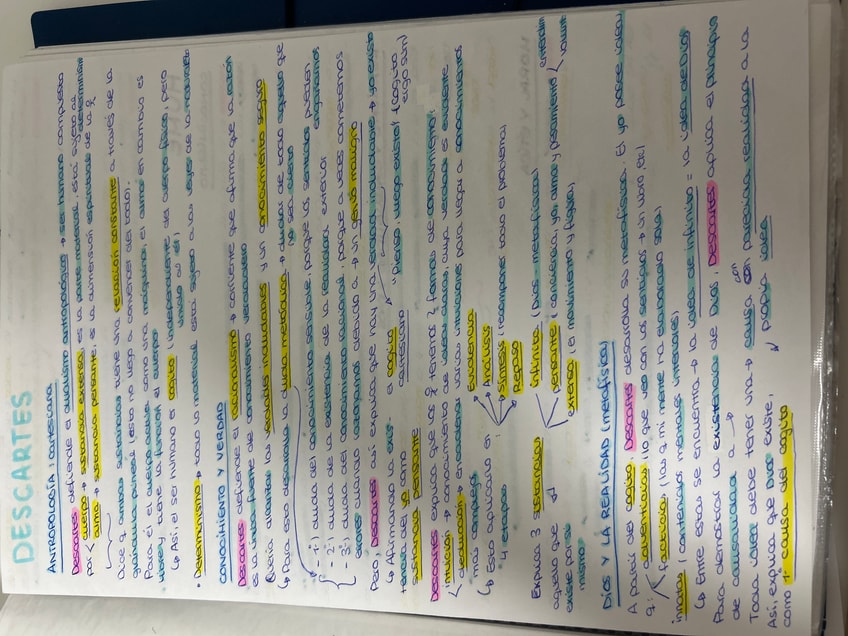 DESCARTES
ANTROPOLOGÍA: cartesiana
Descartes defiende el dualismo antropológico → ser humano compuesto
por < cuerpo → sustancia extensa, es la parte material, está sujeto al determinismo
alma → sustancia pensante, es la dimensión espiritual de la
Dice q ambas sustancias tiene una relación constante a través de la
glándula pineal (esto no llegó a convencer del todo).
Para él el cuerpo actúa como una máquina, el alma en cambio es
libre y tiene la función el cuerpo
↳ Así el ser humano es cogito (independiente del cuerpo físico, pero
vinculado a él)
• Determinismo → todo lo material está sujeto a las leyes de la naturaleza
CONOCIMIENTO Y VERDAD
Descartes defiende el racionalismo → corriente que afirma que la razón
es la única fuente de conocimiento verdadero
Quería alcanzar las verdades indudables y un conocimiento seguro
↳ Para esto desarrolla la duda metódica → dudar de todo aquello que
no sea cierto
- 1ª) duda del conocimiento sensible, porque los sentidos pueden
engañarnos
- 2ª) duda de la existencia de la realidad exterior
- 3ª) duda del conocimiento racional, porque a veces cometemos
errores cuando razonamos debido a → un genio maligno
Pero, Descartes así explica que hay una verdad indudable → yo existo
↳ Afirmando la existencia del yo como
sustancia pensante
el cogito cartesiano
"pienso luego existo" (cogito ergo sum)
Descartes explica que los q tenemos 2 formas de conocimiento:
intuición → conocimiento de ideas claras, cuya verdad es evidente
deducción → encadenar varias intuiciones para llegar a conocimientos
más complejos
↳ Esto aplicarlo a:
4 etapas
Evidencia
Análisis
Síntesis (recomponer todo el problema)
Repaso
Explica 3 sustancias
aquello que
existe por sí
mismo
infinita (Dios - metafísica)
pensante (conciencia, yo, alma y pensamiento <
extensa (el movimiento y figura)
DIOS Y LA REALIDAD (metafísica)
A partir del cogito Descartes desarrolla su metafísica. El yo posee ideas
q: adventicias (lo que veo con los sentidos → un libro, etc)
facticias (las q mi mente ha elaborado sola)
innatas (contenidos mentales internales)
↳ Entre estas se encuentra → la idea de infinito = la idea de Dios
Para demostrar la existencia de Dios, Descartes aplica el principio
de causalidad a →
Toda idea debe tener una → causa con realidad a la
propia idea
Así, explica que Dios existe,
como 1ª causa del cogito